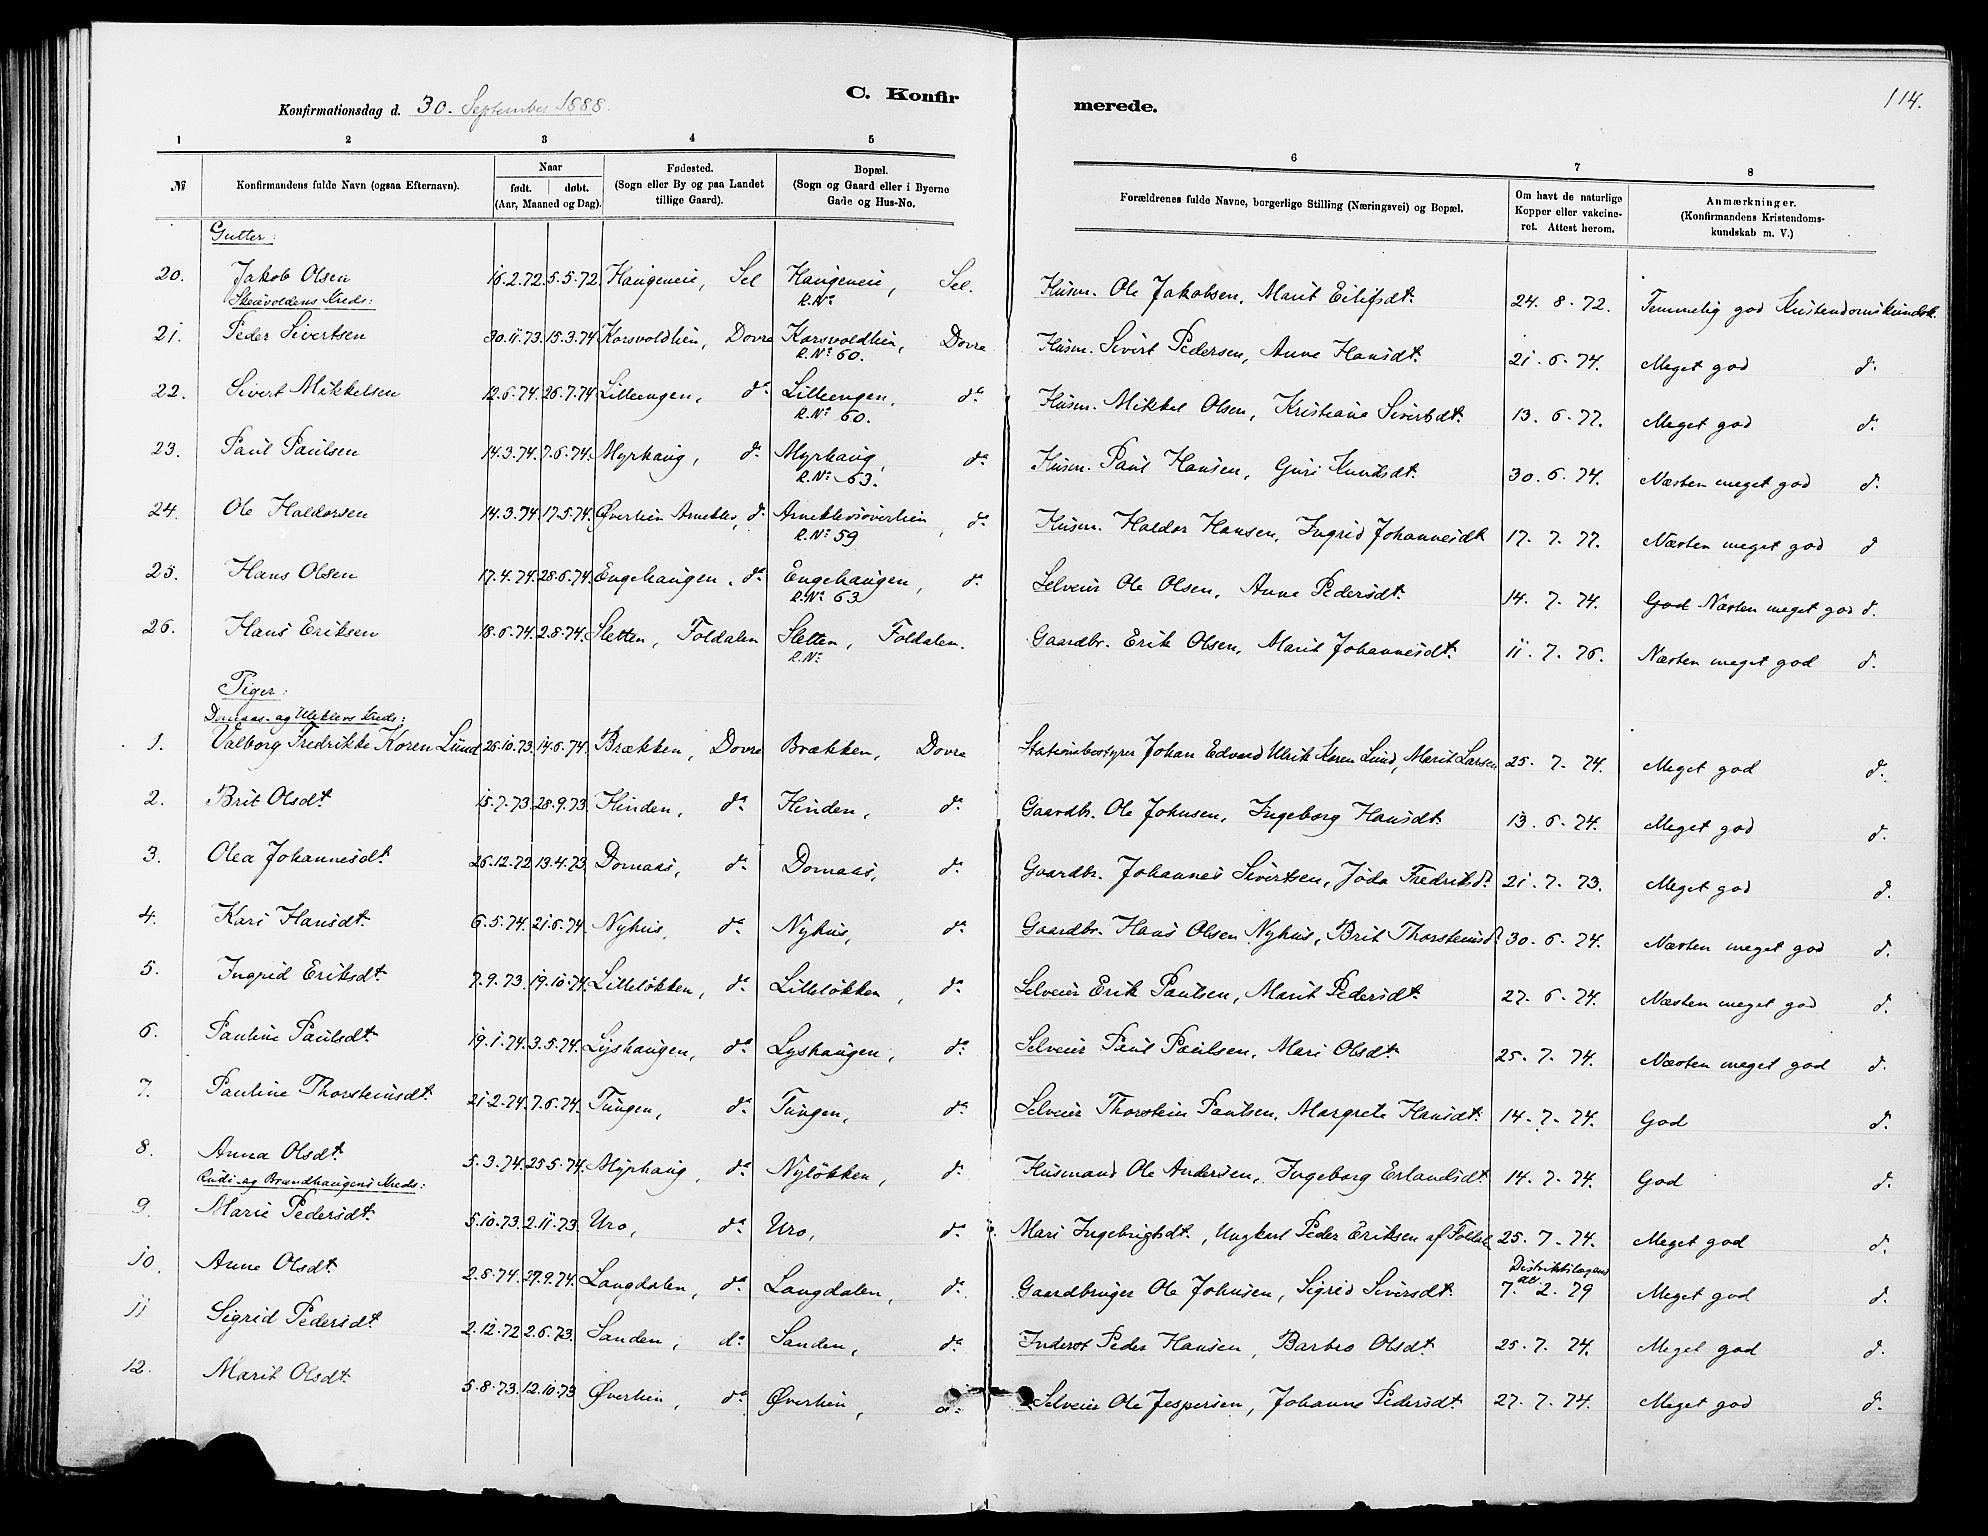 114.
Konfirmationsdag d. 30. September 1888.
C. Konfirmerede.
1 2 3 4 5 6 7 8
№
Konfirmandens fulde Navn (ogsaa Efternavn).
Naar
født. døbt.
(Aar, Maaned og Dag).
Fødested.
(Sogn eller By og paa Landet
tillige Gaard).
Bopæl.
(Sogn og Gaard eller i Byerne
Gade og Hus-No.
Forældrenes fulde Navne, borgerlige Stilling (Næringsvei) og Bopæl.
Om havt de naturlige
Kopper eller vakcine-
ret. Attest herom.
Anmærkninger.
(Konfirmandens Kristendoms-
kundskab m. V.)
Gutter:
20. Jakob Olsen 16.2.72. 5.5.72. Haugeneie, Sel Haugeneie, Sel. Husm. Ole Jakobsen, Marit Eilifsdt. 24. 8. 72. Temmelig god Kristendomskundsk.
R.No
Skeievoldens Kreds:
21. Peder Sivertsen 30.11.73. 15.3.74. Korsvoldlien, Dovre Korsvoldlien, Dovre Husm. Sivert Pedersen, Anne Hansdt. 21. 6. 74. Meget god d.
R.No 60.
22. Sivert Mikkelsen 12.6.74. 26.7.74. Lilleengen, do Lilleengen, do Husm. Mikkel Olsen, Kristiane Sivertsdt. 13. 6. 77. Meget god d.
R.No 60.
23. Paul Paulsen 14.3.74. 7.6.74. Myrhaug, do Myrhaug, do Husm. Paul Hansen, Guri Knudsdt. 30. 6. 74. Næsten meget god d.
R.No 63.
24. Ole Haldorsen 14.3.74. 17.5.74. Øverlien Arneklev, do Arneklevsøverlien, do Husm. Haldor Hansen, Ingrid Johannesdt 17. 7. 77. Næsten meget god d
R.No 59
25. Hans Olsen 17.4.74. 28.6.74. Engehaugen, do Engehaugen, do Selveier Ole Olsen, Anne Pedersdt. 14. 7. 74. God Næsten meget god d.
R.No 63
26. Hans Eriksen 18.6.74. 2.8.74. Sletten, Foldalen Sletten, Foldalen. Gaardbr. Erik Olsen, Marit Johannesdt. 11. 7. 76. Næsten meget god d.
R.No
Piger:
Domaas- og Uleklevs Kreds:
1. Valborg Fredrikke Koren Lund 26.10.73. 14.6.74. Brækken, Dovre Brækken, Dovre Stationsbestyrer Johan Edvard Ulrik Koren Lund, Marit Larsen 25. 7. 74. Meget god d.
2. Brit Olsdt 15.7.73. 28.9.73. Hinden, do Hinden, do Gaardbr. Ole Johnsen, Ingeborg Hansdt. 13. 6. 74. Meget god d.
3. Olea Johannesdt 26.12.72. 13.4.73. Domaas, do Domaas, do Gaardbr. Johannes Sivertsen, Jøda Fredriksd. 21. 7. 73. Meget god d.
4. Kari Hansdt. 6.5.74. 21.6.74. Nyhus, do Nyhus, do Gaardbr. Hans Olsen Nyhus, Brit Thorsteinsd 30. 6. 74. Næsten meget god d.
5. Ingrid Eriksdt. 7.9.73. 19.10.74. Lilleløkken, do Lilleløkken, do Selveier Erik Paulsen, Marit Pedersdt. 27. 6. 74. Næsten meget god d.
6. Pauline Paulsdt. 19.1.74. 3.5.74. Lyshaugen, do Lyshaugen, do Selveier Paul Paulsen, Mari Olsdt. 25. 7. 74. Næsten meget god d.
7. Pauline Thorsteinsdt. 21.2.74. 7.6.74. Tungen, do Tungen, do Selveier Thorstein Paulsen, Margrete Hansdt. 14. 7. 74. God d.
8. Anna Olsdt. 5.3.74. 25.5.74. Myrhaug, do Nyløkken, do Husmand Ole Andersen, Ingeborg Erlandsdt 14. 7. 74. God d.
Rudi- og Brændhaugens Kreds:
9. Marie Pedersdt. 5.10.73. 2.11.73. Uro, do Uro, do Mari Ingebrigtsdt., Ungkarl Peder Eriksen af Foldal. 25. 7. 74. Meget god d.
10. Anne Olsdt. 2.8.74. 27.9.74. Langdalen, do Langdalen, do Gaardbruger Ole Johnsen, Sigrid Siversdt. Distriktslægens 7. 2. 79 Meget god d.
11 Sigrid Pedersdt. 2.12.72 2.6.73. Sanden, do Sanden, do Inderst Peder Hansen, Barbro Olsdt. 25. 7. 74. Meget god d.
12. Marit Olsdt. 5.8.73. 12.10.73 Øverlien, do Øverlien, do Selveier Ole Jespersen, Johanne Pedersdt. 27. 7. 74. Meget god d.